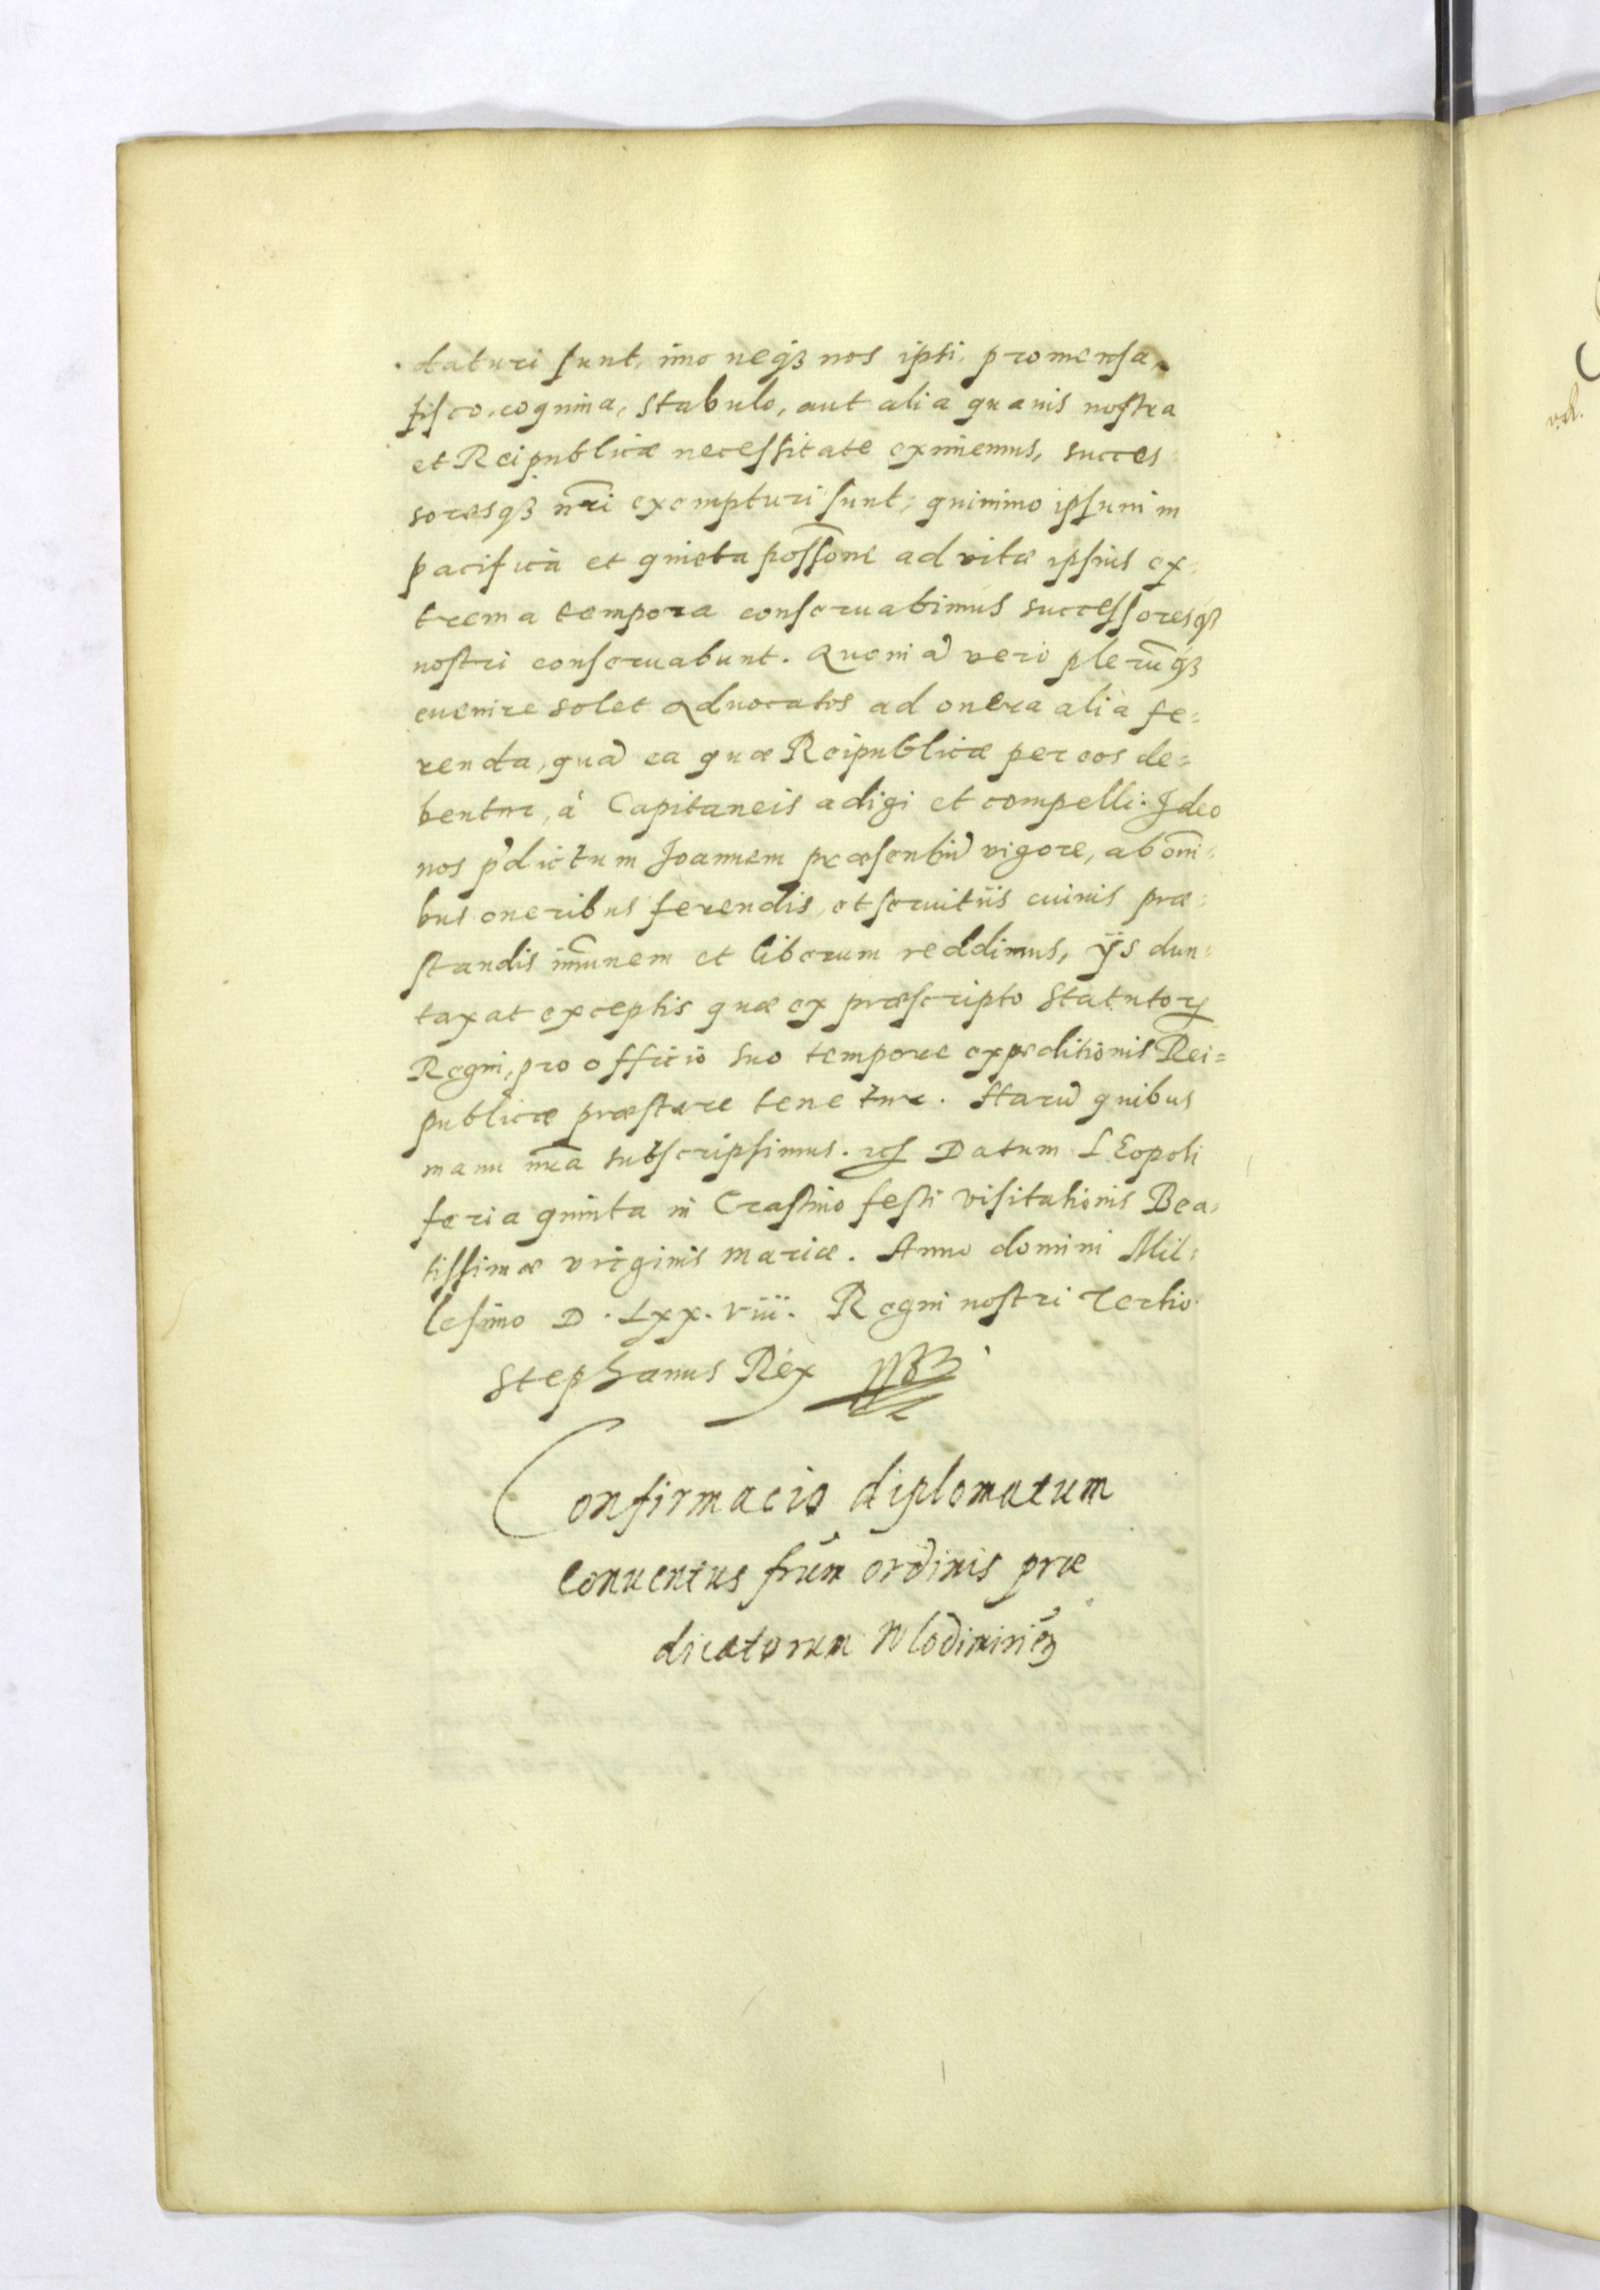 daturi sunt, imo neqz nos ipsi, pro mensa,
fisco, coquina, stabulo, aut alia quauis nostra
et Reipublicæ necessitate eximemus, succes=
soresqz nr̃i exempturi sunt, quinimo ipsum in
pacifica et quieta possõne ad vitæ ipsius ex=
trema tempora conseruabimus successoresqz
nostri conseruabunt. Quoniã vero plerũqz
euenire solet Aduocatos ad onera alia fe=
renda, quã ea quæ Reipublicæ per eos de=
bentur, à Capitaneis adigi et compelli: Ideo
nos p̃dictum Joannem præsentiũ vigore, ab om̃i=
bus oneribus ferendis, et seruitiis cuiuis præ=
standis im̃unem et liberum reddimus, ijs dun=
taxat exceptis quæ ex præscripto statutoꝝ
Regni, pro officio suo tempore expeditionis Rei=
publicæ præstare tenetur. Harũ quibus
manu nr̃a subscripsimus. Datum LEopoli
feria quinta in Crastino festi visitationis Bea=
tissimæ virginis Mariæ. Anno domini Mil=
lesimo D. Lxx. viii. Regni nostri Tertio.
Stephanus Rex
Confirmacio diplomatum
Conuentus frũm ordinis præ
dicatorum Wlodimirieñ